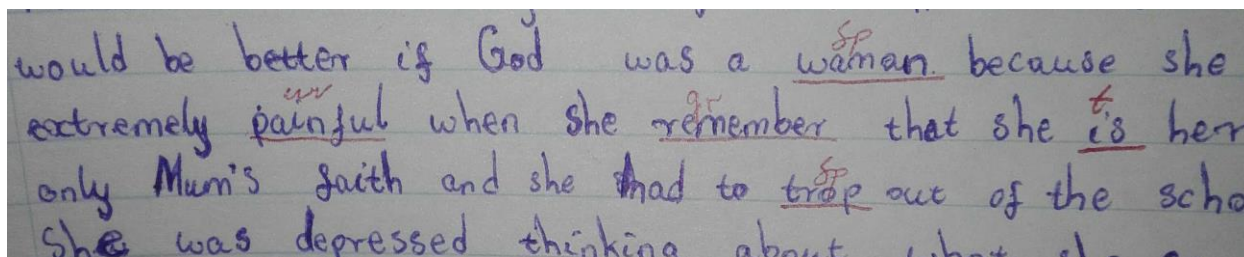 would be better if God was a waman. because she
sp
extremely painful when she remember that she is her
ww gr t
only Mum's faith and she had to trop out of the scho
sp
She was depressed thinking about what